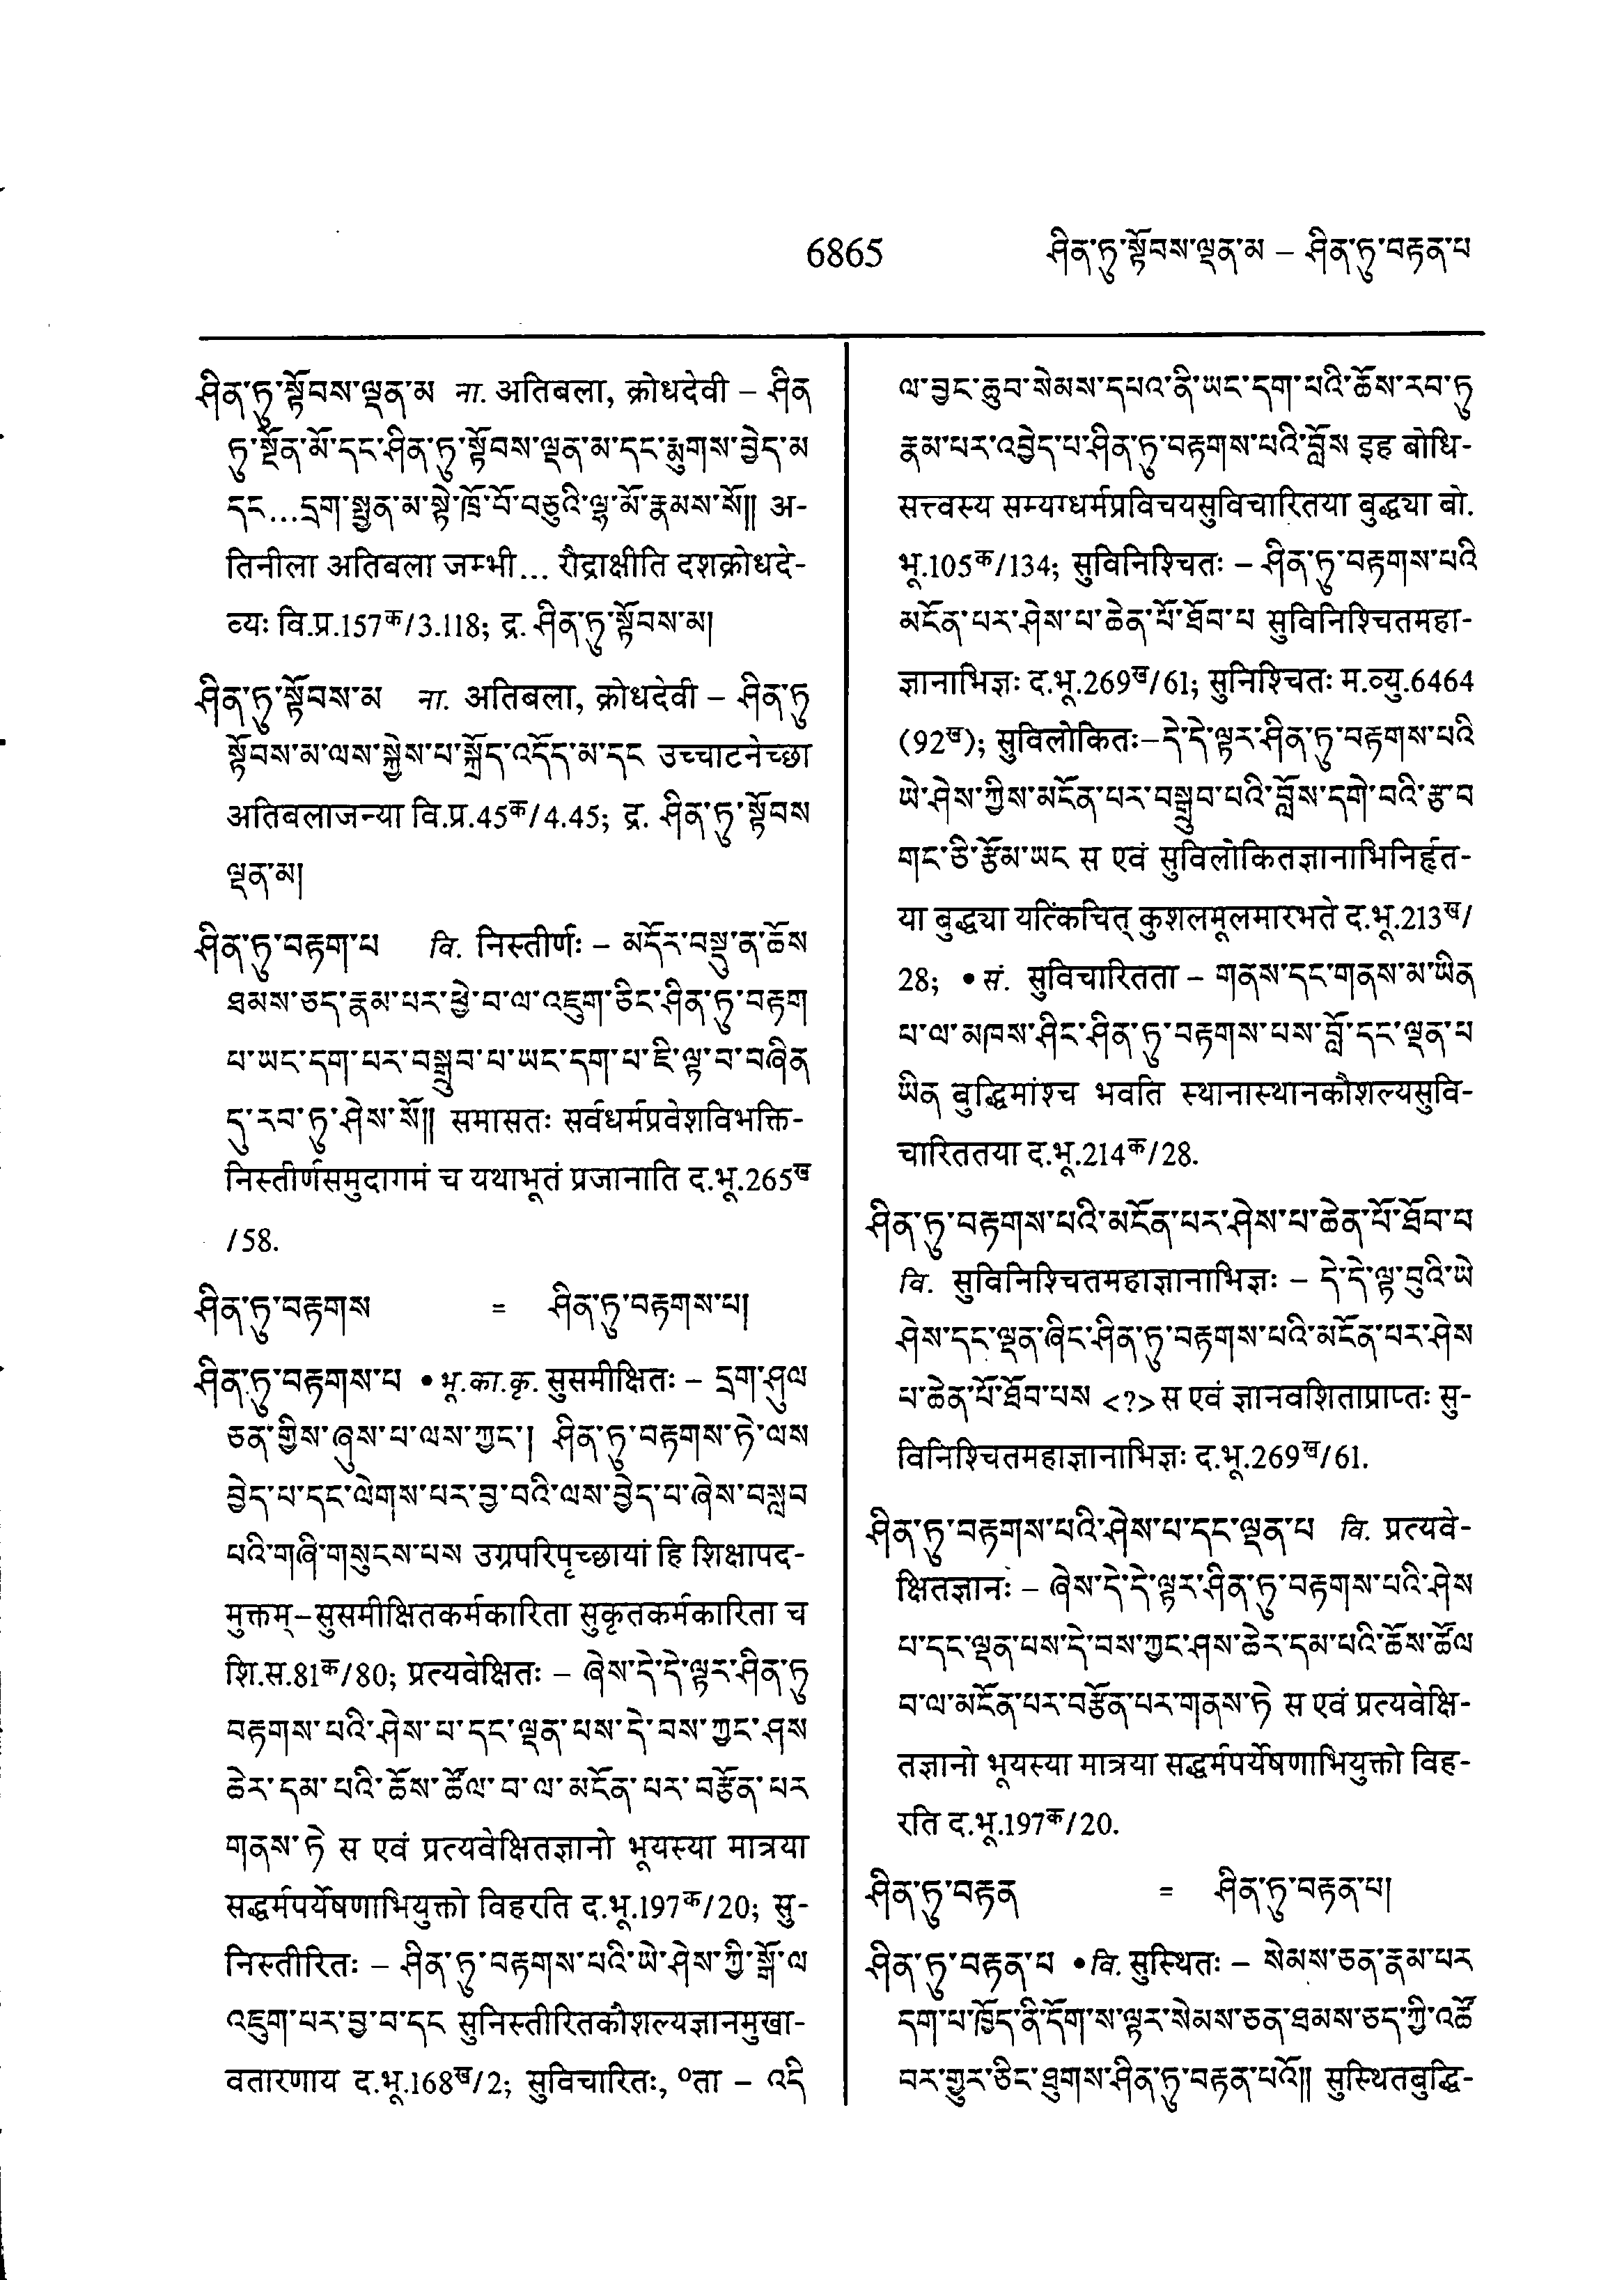 6865 ཤིན་ཏུ་སྟོབས་ལྡན་མ – ཤིན་ཏུ་བརྟན་པ
ཤིན་ཏུ་སྟོབས་ལྡན་མ ना. अतिबला, क्रोधदेवी – ཤིན
ཏུ་སྔོན་མོ་དང་ཤིན་ཏུ་སྟོབས་ལྡན་མ་དང་རྨུགས་བྱེད་མ
དང...དྲག་སྤྱན་མ་སྟེ་ཁྲོ་བོ་བཅུའི་ལྷ་མོ་རྣམས་སོ།། अ-
तिनीला अतिबला जम्भी... रौद्राक्षीति दशक्रोधदे-
व्यः वि.प्र.157क/3.118; द्र. ཤིན་ཏུ་སྟོབས་མ།
ཤིན་ཏུ་སྟོབས་མ ना. अतिबला, क्रोधदेवी – ཤིན་ཏུ
སྟོབས་མ་ལས་སྐྱེས་པ་སྐྲོད་འདོད་མ་དང उच्चाटनेच्छा
अतिबलाजन्या वि.प्र.45क/4.45; द्र. ཤིན་ཏུ་སྟོབས
ལྡན་མ།
ཤིན་ཏུ་བརྟག་པ वि. निस्तीर्णः – མདོར་བསྡུ་ན་ཆོས
ཐམས་ཅད་རྣམ་པར་ཕྱེ་བ་ལ་འཇུག་ཅིང་ཤིན་ཏུ་བརྟག
པ་ཡང་དག་པར་བསྒྲུབ་པ་ཡང་དག་པ་ཇི་ལྟ་བ་བཞིན
དུ་རབ་ཏུ་ཤེས་སོ།། समासतः सर्वधर्मप्रवेशविभक्ति-
निस्तीर्णसमुदागमं च यथाभूतं प्रजानाति द.भू.265ख
/58.
ཤིན་ཏུ་བརྟགས = ཤིན་ཏུ་བརྟགས་པ།
ཤིན་ཏུ་བརྟགས་པ • भू.का.कृ. सुसमीक्षितः – དྲག་ཤུལ
ཅན་གྱིས་ཞུས་པ་ལས་ཀྱང་། ཤིན་ཏུ་བརྟགས་ཏེ་ལས
བྱེད་པ་དང་ལེགས་པར་བྱ་བའི་ལས་བྱེད་པ་ཞེས་བསླབ
པའི་གཞི་གསུངས་པས उग्रपरिपृच्छायां हि शिक्षापद-
मुक्तम्–सुसमीक्षितकर्मकारिता सुकृतकर्मकारिता च
शि.स.81क/80; प्रत्यवेक्षितः – ཞེས་དེ་དེ་ལྟར་ཤིན་ཏུ
བརྟགས་པའི་ཤེས་པ་དང་ལྡན་པས་དེ་བས་ཀྱང་ཤས
ཆེར་དམ་པའི་ཆོས་ཚོལ་བ་ལ་མངོན་པར་བརྩོན་པར
གནས་ཏེ स एवं प्रत्यवेक्षितज्ञानो भूयस्या मात्रया
सद्धर्मपर्येषणाभियुक्तो विहरति द.भू.197क/20; सु-
निस्तीरितः – ཤིན་ཏུ་བརྟགས་པའི་ཡེ་ཤེས་ཀྱི་སྒོ་ལ
འཇུག་པར་བྱ་བ་དང सुनिस्तीरितकौशल्यज्ञानमुखा-
वतारणाय द.भू.168ख/2; सुविचारितः, ०ता – འདི
ལ་བྱང་ཆུབ་སེམས་དཔའ་ནི་ཡང་དག་པའི་ཆོས་རབ་ཏུ
རྣམ་པར་འབྱེད་པ་ཤིན་ཏུ་བརྟགས་པའི་བློས इह बोधि-
सत्त्वस्य सम्यग्धर्मप्रविचयसुविचारितया बुद्ध्या बो.
भू.105क/134; सुविनिश्चितः – ཤིན་ཏུ་བརྟགས་པའི
མངོན་པར་ཤེས་པ་ཆེན་པོ་ཐོབ་པ सुविनिश्चितमहा-
ज्ञानाभिज्ञः द.भू.269ख/61; सुनिश्चितः म.व्यु.6464
(92ख); सुविलोकितः–དེ་དེ་ལྟར་ཤིན་ཏུ་བརྟགས་པའི
ཡེ་ཤེས་ཀྱིས་མངོན་པར་བསྒྲུབ་པའི་བློས་དགེ་བའི་རྩ་བ
གང་ཅི་རྩོམ་ཡང स एवं सुविलोकितज्ञानाभिनिर्हृत-
या बुद्ध्या यत्किंचित् कुशलमूलमारभते द.भू.213ख/
28; • सं. सुविचारितता – གནས་དང་གནས་མ་ཡིན
པ་ལ་མཁས་ཤིང་ཤིན་ཏུ་བརྟགས་པས་བློ་དང་ལྡན་པ
ཡིན बुद्धिमांश्च भवति स्थानास्थानकौशल्यसुवि-
चारिततया द.भू.214क/28.
ཤིན་ཏུ་བརྟགས་པའི་མངོན་པར་ཤེས་པ་ཆེན་པོ་ཐོབ་པ
वि. सुविनिश्चितमहाज्ञानाभिज्ञः – དེ་དེ་ལྟ་བུའི་ཡེ
ཤེས་དང་ལྡན་ཞིང་ཤིན་ཏུ་བརྟགས་པའི་མངོན་པར་ཤེས
པ་ཆེན་པོ་ཐོབ་པས <?> स एवं ज्ञानवशिताप्राप्तः सु-
विनिश्चितमहाज्ञानाभिज्ञः द.भू.269ख/61.
ཤིན་ཏུ་བརྟགས་པའི་ཤེས་པ་དང་ལྡན་པ वि. प्रत्यवे-
क्षितज्ञानः – ཞེས་དེ་དེ་ལྟར་ཤིན་ཏུ་བརྟགས་པའི་ཤེས
པ་དང་ལྡན་པས་དེ་བས་ཀྱང་ཤས་ཆེར་དམ་པའི་ཆོས་ཚོལ
བ་ལ་མངོན་པར་བརྩོན་པར་གནས་ཏེ स एवं प्रत्यवेक्षि-
तज्ञानो भूयस्या मात्रया सद्धर्मपर्येषणाभियुक्तो विह-
रति द.भू.197क/20.
ཤིན་ཏུ་བརྟན = ཤིན་ཏུ་བརྟན་པ།
ཤིན་ཏུ་བརྟན་པ • वि. सुस्थितः – སེམས་ཅན་རྣམ་པར
དག་པ་ཁྱོད་ནི་དོག་ས་ལྟར་སེམས་ཅན་ཐམས་ཅད་ཀྱི་འཚོ
བར་གྱུར་ཅིང་ཐུགས་ཤིན་ཏུ་བརྟན་པའོ།། सुस्थितबुद्धि-